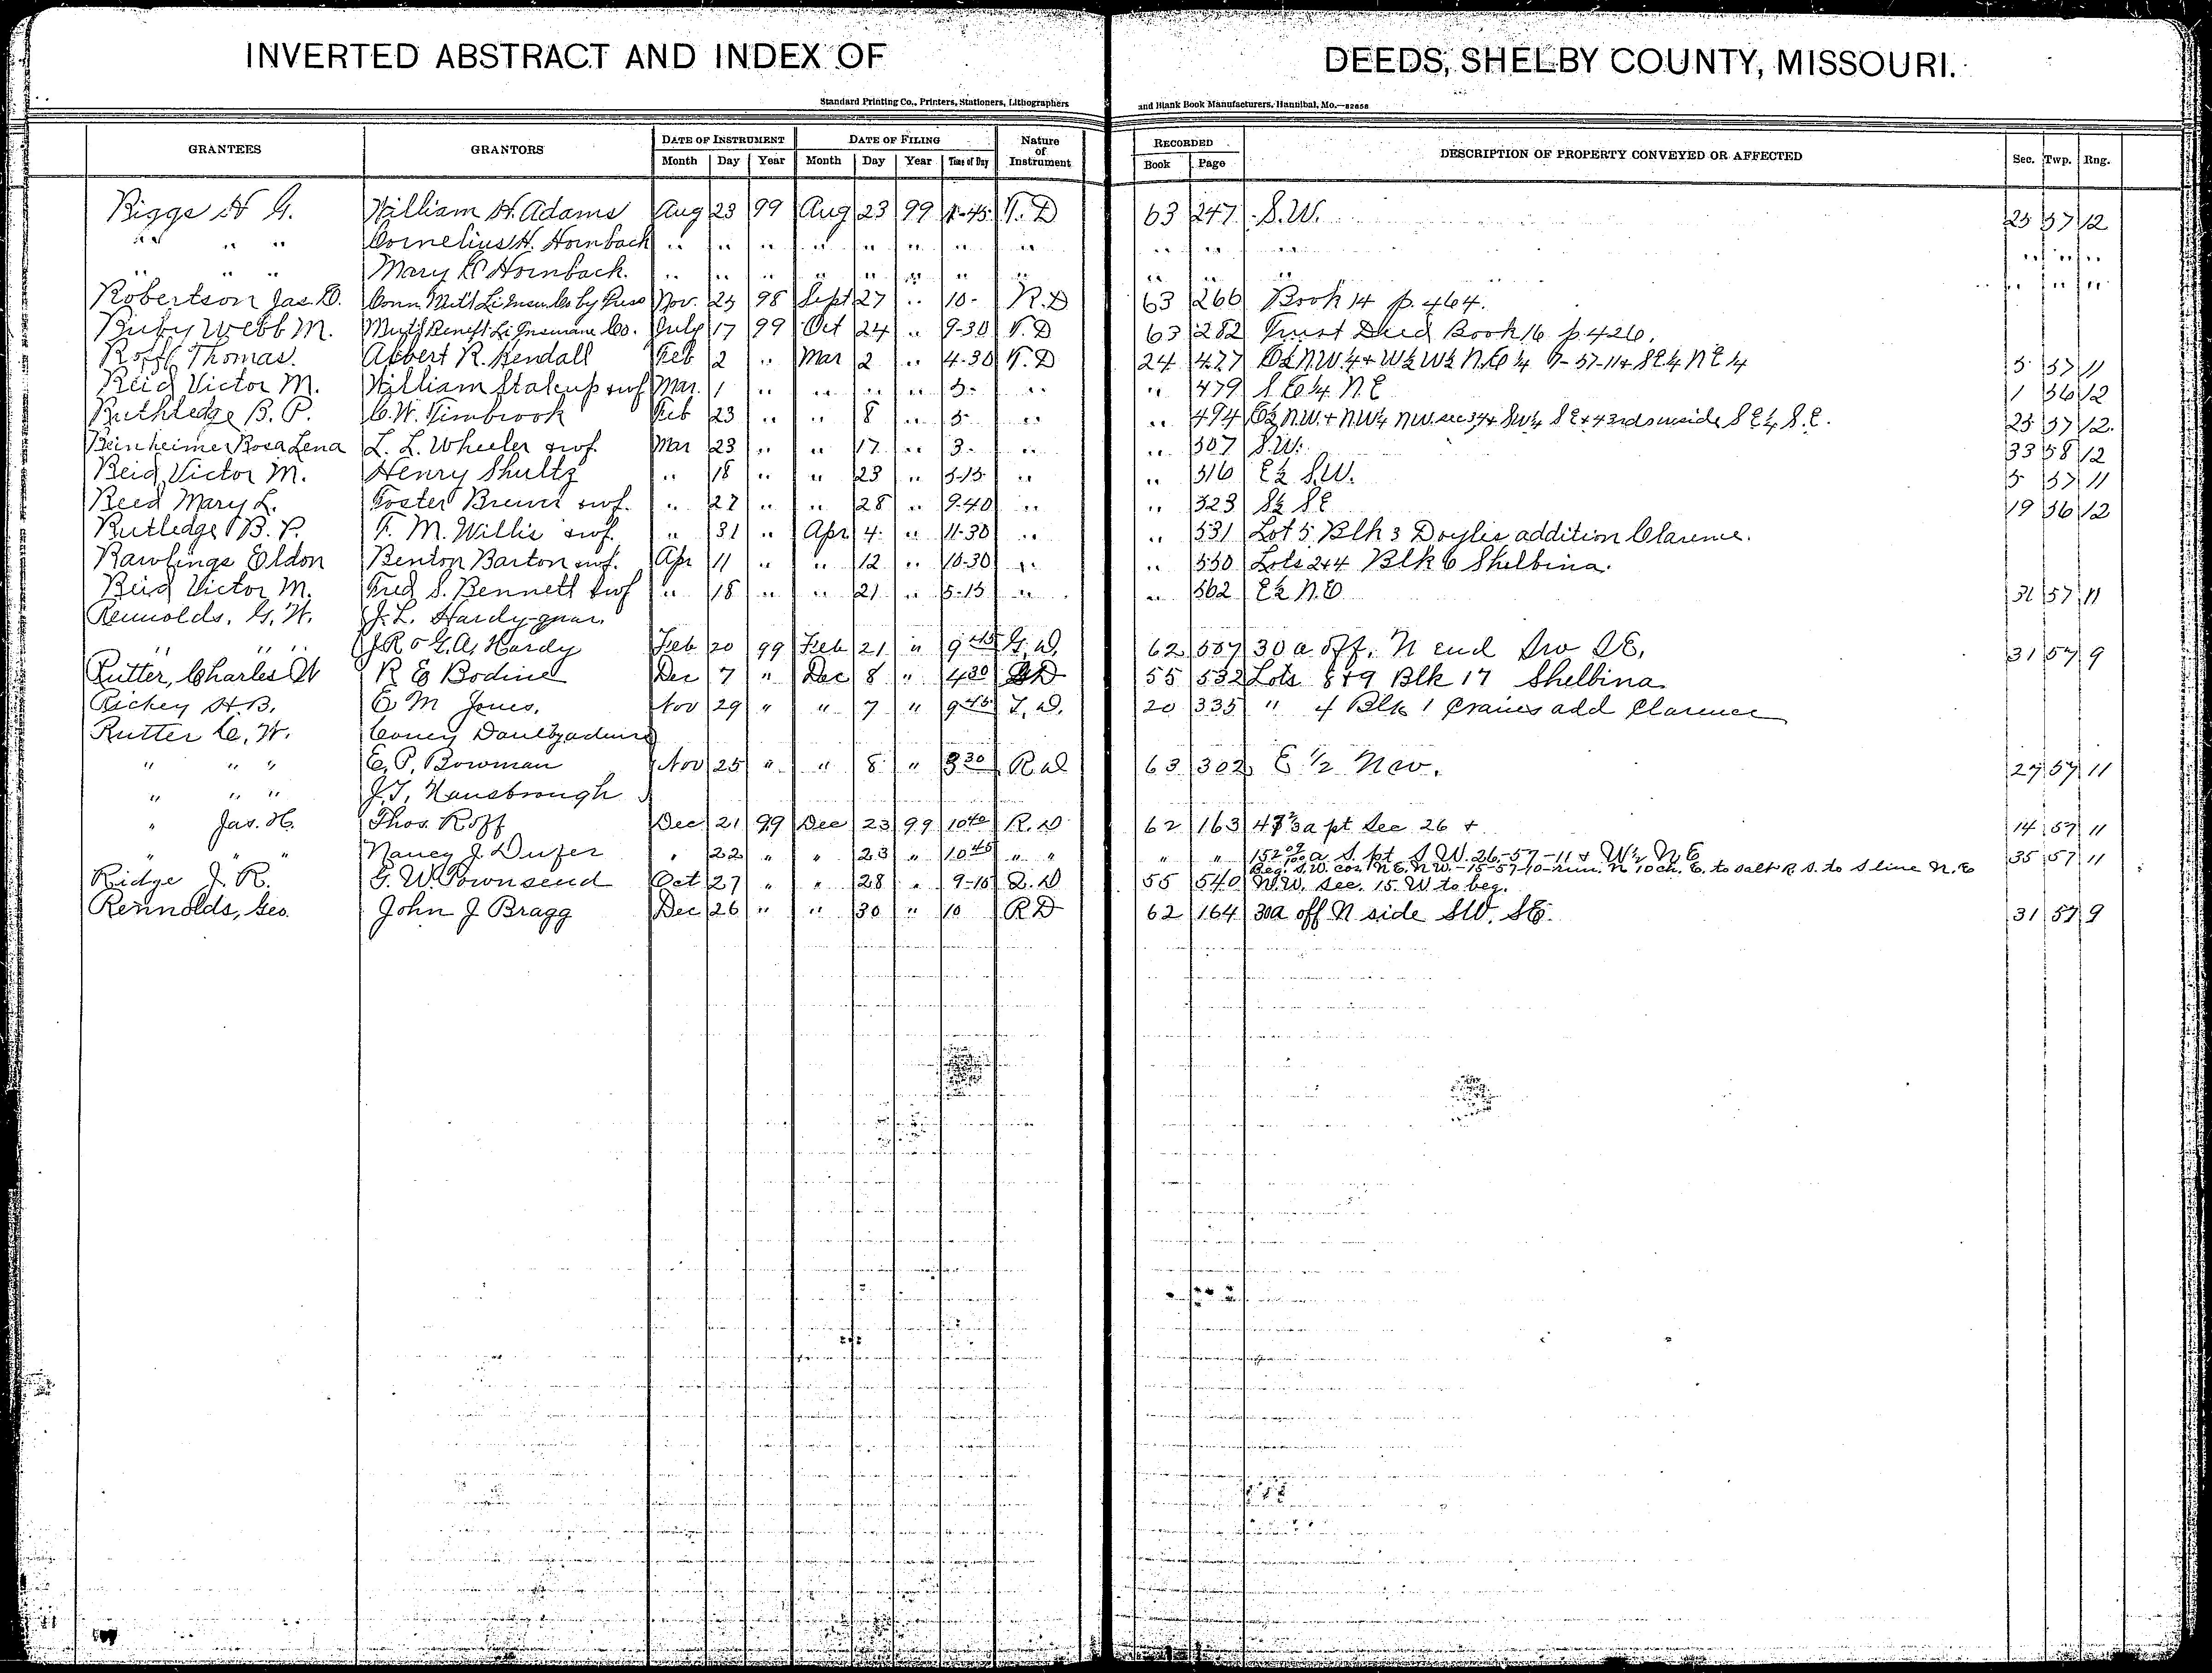 INVERTED ABSTRACT AND INDEX OF DEEDS, SHELBY COUNTY, MISSOURI.
Standard Printing Co., Printers, Stationers, Lithographers and Blank Book Manufacturers, Hannibal, Mo.—82858
GRANTEES GRANTORS DATE OF INSTRUMENT DATE OF FILING Nature of Instrument RECORDED DESCRIPTION OF PROPERTY CONVEYED OR AFFECTED Sec. Twp. Rng.
Month Day Year Month Day Year Time of Day Book Page
Riggs H G. William H. Adams Aug 23 99 Aug 23 99 T. D 63 247 S.W. 25 57 12
" " " Cornelius H. Hornback " " " " " " " " " " " " " "
" " " Mary E Hornback. " " " " " " " " " " " " " "
Robertson Jas. D. Conn Mut'l Li Insu. Co by Press Nov. 25 98 Sept 27 " 10- R.D 63 266 Book 14 p. 464.
Ruby Webb M. Mut'l Benefit Li Insurance Co. July 17 99 Oct 24 " 9-30 T. D 63 282 Trust Deed Book 16 p. 426.
Roff Thomas. Albert R. Kendall Feb 2 " Mar 2 " 4-30 T. D 24 477 E½ N.W.4 + W½ W½ N.E ¼ 9-57-11 + SE¼ NE ¼ 5 57 11
Reid Victor M. William Stalcup & wf Mar. 1 " " " " 5- " " 479 S E¼ N.E 1 56 12
Ruthledge B. P. C.W. Timbrook Feb 23 " " 8 " 5- " " 494 E½ N.W. + N.W¼ N.W. sec 34 + SW¼ SE + 43rds wside S E¼ S.E. 25 57 12.
Beinheimer Rosa Lena L. L. Wheeler & wf. Mar 23 " " 17 " 3- " " 507 S.W. 33 58 12
Reid Victor M. Henry Shultz " 18 " " 23 " 5-15 " " 516 E½ S.W. 5 57 11
Reed Mary L. Foster Brewer & wf. " 27 " " 28 " 9-40 " " 523 S½ SE 19 56 12
Rutledge B. P. T. M. Willis & wf. " 31 " Apr 4 " 11-30 " " 531 Lot 5 Blk 3 Doyles addition Clarence.
Rawlings Eldon Benton Barton & wf. Apr 11 " " 12 " 10-30 " " 550 Lots 2+4 Blk 6 Shelbina.
Reid Victor M. Fred S. Bennett & wf " 18 " " 21 " 5-15 " " 562 E½ N.E 31 57 11
Rennolds, G. W. J. L. Hardy-guar.
" " " J R & G. A. Hardy Feb 20 99 Feb 21 " 9 45 G. D. 62 587 30 a off. N end Sw SE, 31 57 9
Rutter, Charles W R E Bodine Dec 7 " Dec 8 " 4 30 55 532 Lots 8+9 Blk 17 Shelbina
Rickey H. B. E M Jones. Nov 29 " " 7 " 9 45 T. D. 20 335 " 4 Blk 1 Crains add Clarence
Rutter C. W.
" " " E. P. Bowman Nov 25 " " 8 " 8 30 R d 63 302 E ½ Nw. 27 57 11
" " " J. T. Hansbrough
" Jas. H. Thos. Roff Dec 21 99 Dec 23 99 10 40 R. D 62 163 a pt Sec 26 + 14 57 11
" " " Nancy J. Duzer " 22 " " 23 " 10 45 " " " " 152 07/100 a S. pt. S.W. 26-57-11 + W½ N.E 35 57 11
Ridge J. R. G. W. Townsend Oct 27 " " 28 " 9-15 Q. D 55 540 Beg. S.W. cor. N E. N W. -15-57-10- run. N 10 ch. E. to Salt R S. to S line N. E
N.W. Sec. 15. W to beg.
Rennolds, Geo. John J Bragg Dec 26 " " 30 " 10 R D 62 164 30a off N side SW. SE. 31 57 9